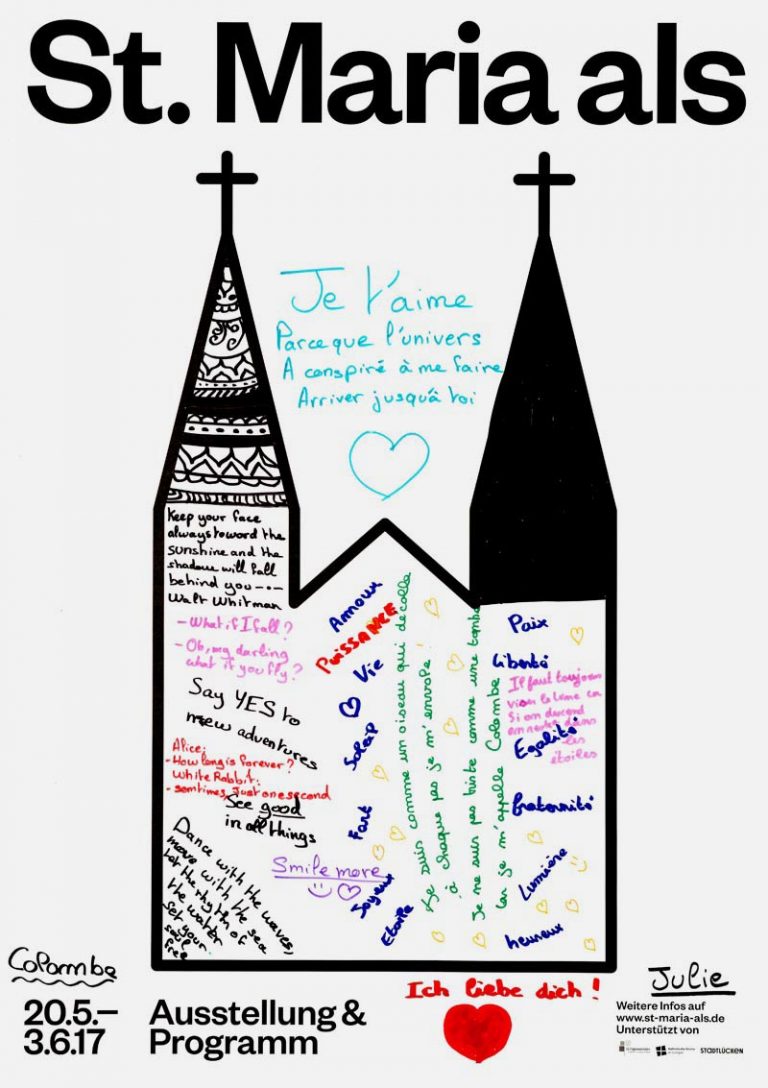 St. Maria als
Je t'aime
Parceque l'univers
A conspiré à me faire
Arriver jusqu'à toi
Keep your face
always toward the
sunshine and the
shadow will fall
behind you —·—
Walt Whitman
- What if I fall?
- Oh, my darling
what if you fly?
Say YES to
new adventures
Alice:
- How long is forever?
White Rabbit:
- somtimes, just one second
See good
in all things
Dance with the waves,
move with the sea
Let the rhythm of
the water
set your
soul
free
Smile more
Amour
PUiSSANCE
Vie
Soleil
Fort
Joyeux
Etoile
Je suis comme un oiseau qui décolle
à chaque pas je m'envole !
Je ne suis pas triste comme une tombe
car je m'appelle Colombe
Paix
Liberté
Il faut toujours
viser la lune ca
Si on descend
on
dans
les
étoiles
Egalité
fraternité
Lumière
heureux
Colombe
Julie
Ich liebe dich !
20.5.–
3.6.17
Ausstellung &
Programm
Weitere Infos auf
www.st-maria-als.de
Unterstützt von
STADTLÜCKEN